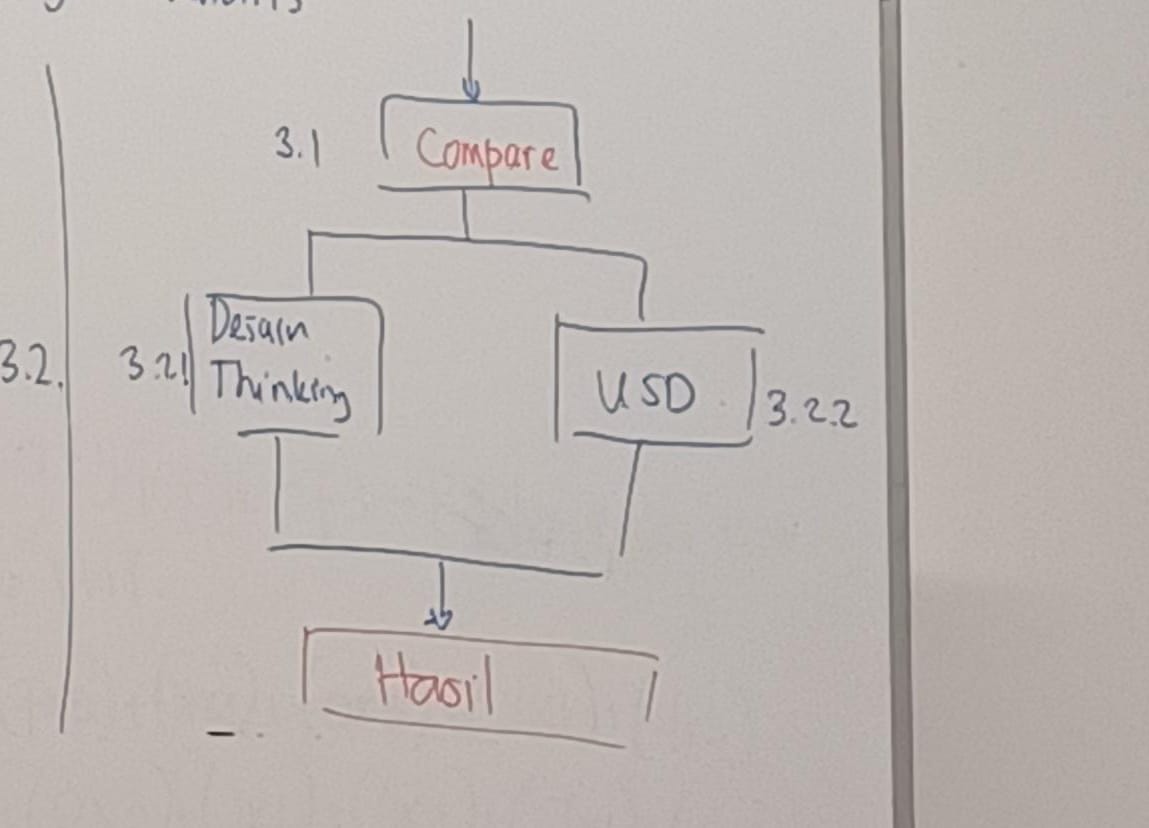 3.1
Compare
3.2.
3.21
Desain
Thinking
USD
3.2.2
Hasil